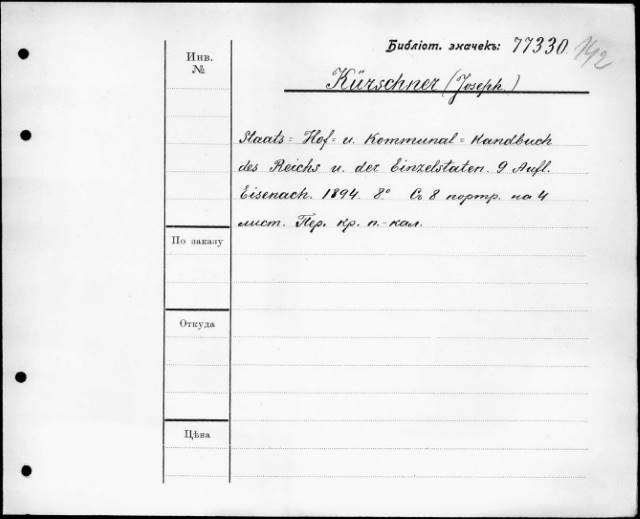 Библіот. значекъ: 77330
Инв.
№
Kürschner (Joseph.)
Staats= Hof= u. Kommunal=Handbuch
des Reichs u. der Einzelstaten. 9 Aufl.
Eisenach. 1894. 8°. Съ 8 портр. на 4
лист. Пер. кр. п.-кал.
По заказу
Откуда
Цѣна